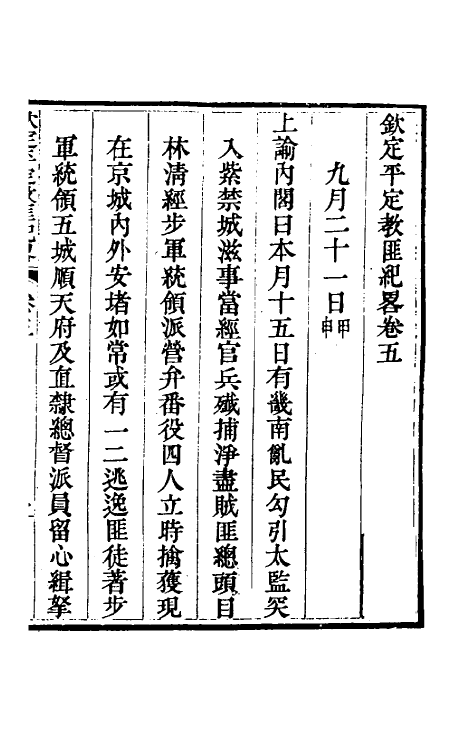 欽定平定教匪紀畧卷五
九月二十一日甲申
上諭內閣日本月十五日有畿南亂民勾引太監突
入紫禁城滋事當經官兵殲捕淨盡賊匪總頭目
林清經步軍統領派營弁番役四人立時擒獲現
在京城內外安堵如常或有一二逃逸匪徒著步
軍統領五城順天府及直隸總督派員留心緝拏